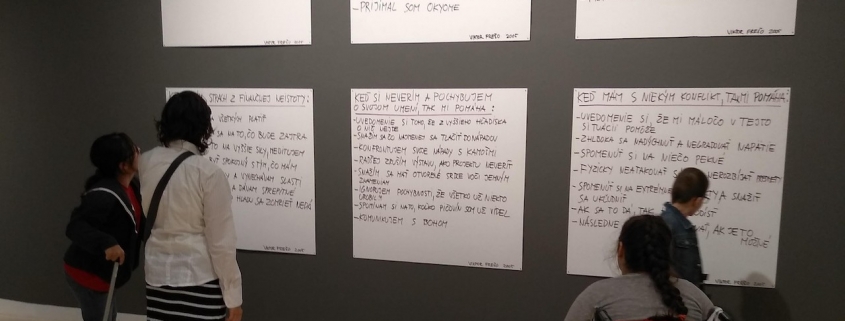 VIKTOR FREŠO 2005
– PRIJÍMAL SOM OKYOME
VIKTOR FREŠO 2005
VIKTOR FREŠO 2005
STRACH Z FINANČNEJ NEISTOTY:
VŠETKÝM PLATIŤ
SA NA TO, ČO BUDE ZAJTRA
SPOKOJNÝ S TÝM, ČO MÁM
A VYNECHÁVAM SLASTI
A DÁVAM
HLADU SA ZOMRIEŤ NEDÁ
VIKTOR FREŠO 2005
KEĎ SI NEVERÍM A POCHYBUJEM
O SVOJOM UMENÍ, TAK MI POMÁHA:
– UVEDOMENIE SI TOHO, ŽE Z VYŠŠIEHO HĽADISKA
O NIČ NEJDE
– SNAŽÍM SA ČO NAJMENEJ SA TLAČIŤ DO NÁPADOV
– KONFRONTUJEM SVOJE NÁPADY S KAMOŠMI
– RADŠEJ ZRUŠÍM VÝSTAVU, AKO PROJEKTU NEVERIŤ
– SNAŽÍM SA MAŤ OTVORENÉ SRDCE VOČI JEMNÝM
ZNAMENIAM
– IGNORUJEM POCHYBNOSTI, ŽE VŠETKO UŽ NIEKTO
UROBIL
– SPOMÍNAM SI NA TO, KOĽKO PIČOVÍN SOM UŽ VIDEL
– KOMUNIKUJEM S BOHOM
VIKTOR FREŠO 2005
KEĎ MÁM S NIEKÝM KONFLIKT, TAK MI POMÁHA:
– UVEDOMENIE SI, ŽE MI MÁLOČO V TEJTO
SITUÁCII POMÔŽE
– ZHLBOKA SA NADÝCHNUŤ A NEGRADOVAŤ NAPÄTIE
– SPOMENÚŤ SI NA NIEČO PEKNÉ
– FYZICKY NEATAKOVAŤ NEROZBÍJAŤ PREDMETY
– SPOMENÚŤ SI NA EXTRÉMNE A SNAŽIŤ
SA UKĽUDNIŤ
– AK SA TO DÁ, TAK
– NÁSLEDNE AK JE TO
MOŽNÉ
VIKTOR FREŠO 2005